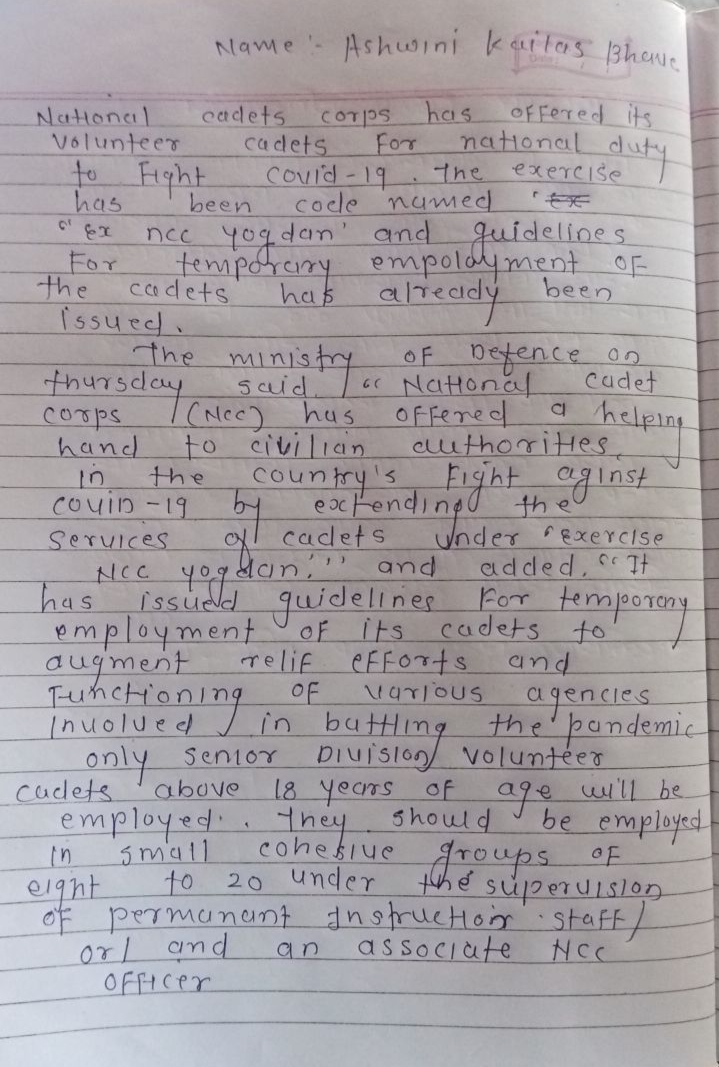 Name :- Ashwini Kailas Bhave
National cadets corps has offered its
volunteer cadets For national duty
to Fight covid-19. The exercise
has been code named '
"Ex ncc yogdan' and guidelines
For temporary empolayment of
the cadets has already been
issued.
The ministry of Defence on
thursday said, "National cadet
corps (Ncc) has offered a helping
hand to civilian authorities
in the country's Fight aginst
covin-19 by extending the
services of cadets under 'exercise
Ncc yogdan'." and added, "It
has issued guidelines For temporary
employment of its cadets to
augment relif efforts and
Functioning of various agencies
involved in battling the pandemic
only senior Division volunteer
cadets above 18 years of age will be
employed. . They should be employed
in small cohesive groups of
eight to 20 under the supervision
of permanant Instruction staff/
or/ and an associate Ncc
officer